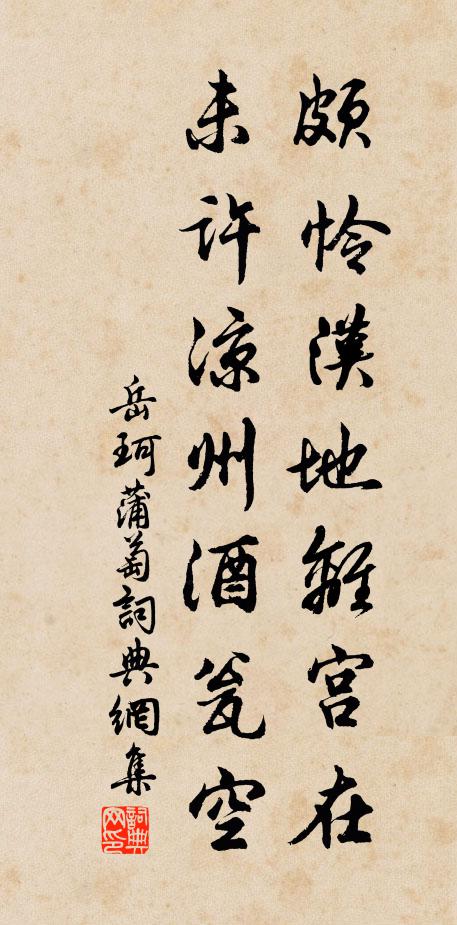 頗怜漢地離宮在
未許涼州酒瓮空
岳珂蒲萄詞典網集
詞典網印